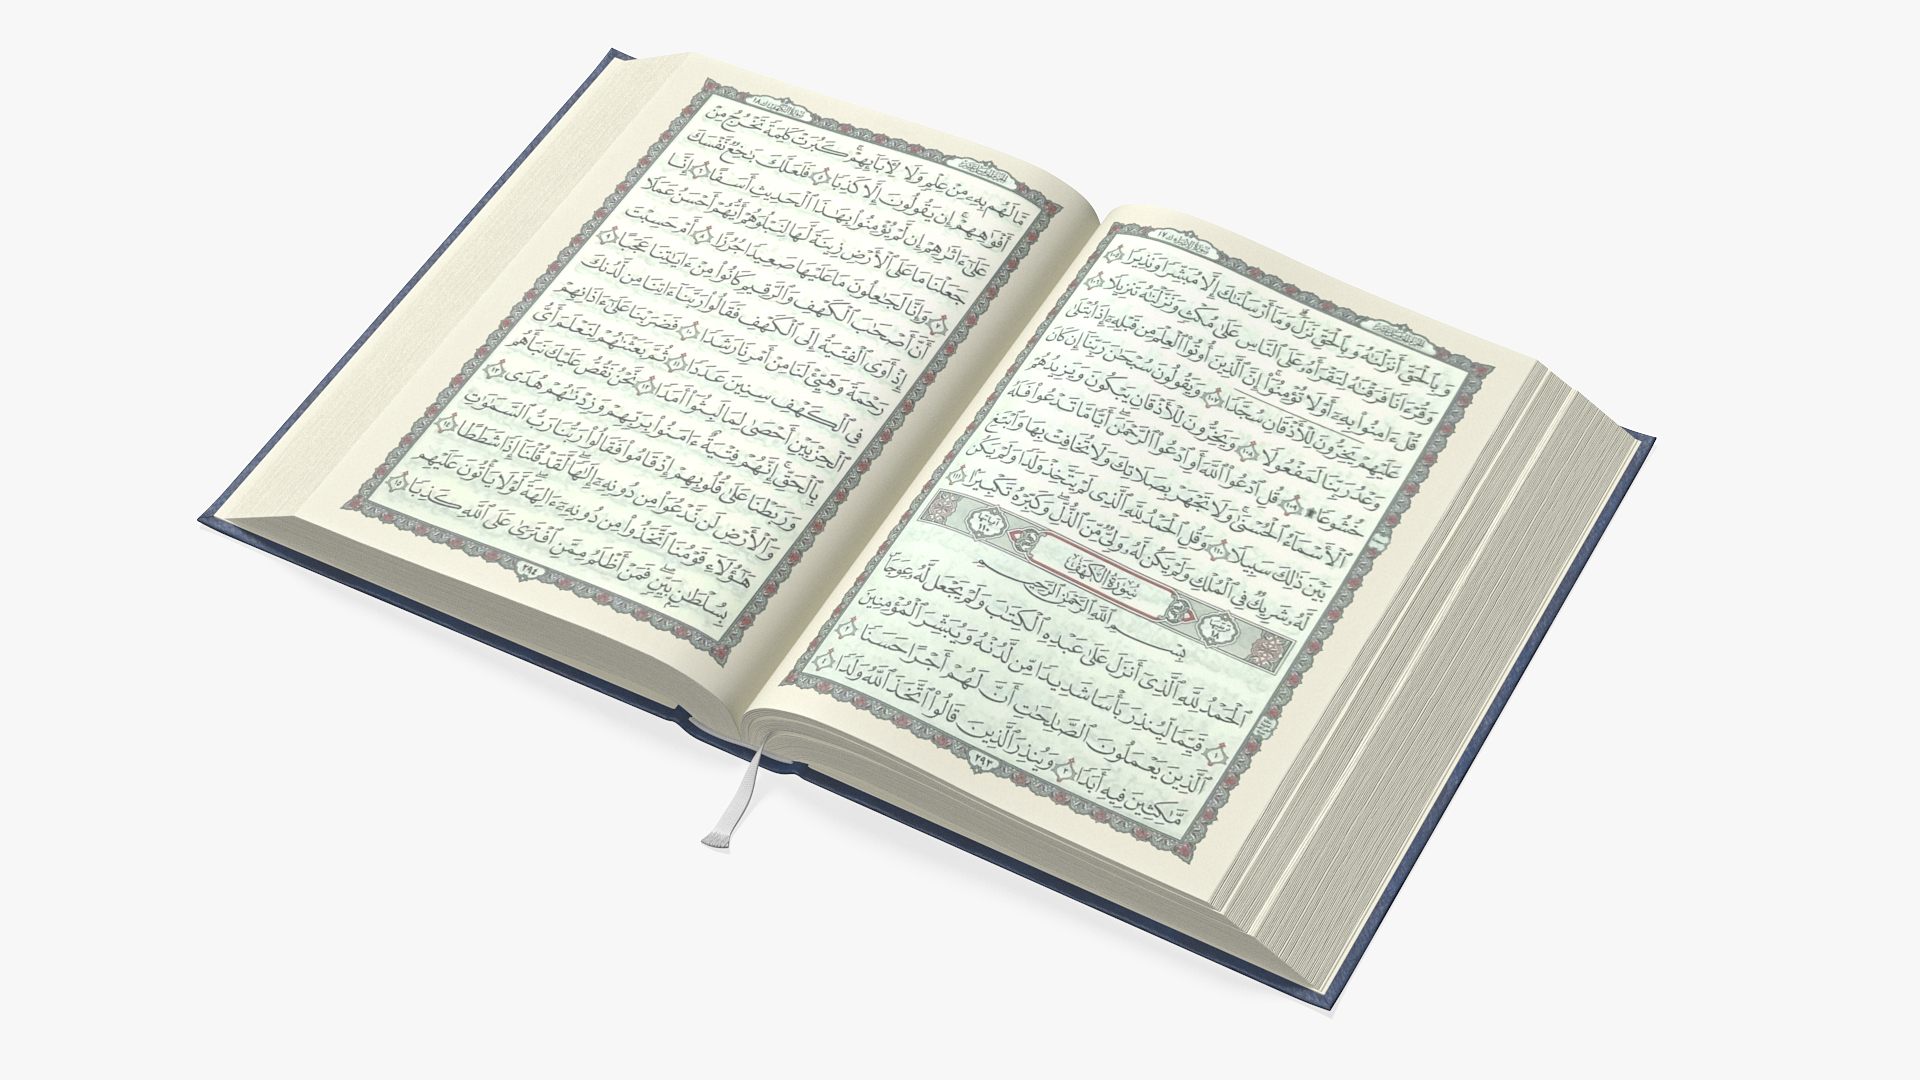 سورة الإسراء ١٧
الجزء الخامس عشر
وَبِٱلْحَقِّ أَنزَلْنَٰهُ وَبِٱلْحَقِّ نَزَلَ ۗ وَمَآ أَرْسَلْنَٰكَ إِلَّا مُبَشِّرًا وَنَذِيرًا ١٠٥
وَقُرْءَانًا فَرَقْنَٰهُ لِتَقْرَأَهُۥ عَلَى ٱلنَّاسِ عَلَىٰ مُكْثٍ وَنَزَّلْنَٰهُ تَنزِيلًا ١٠٦
قُلْ ءَامِنُوا۟ بِهِۦٓ أَوْ لَا تُؤْمِنُوٓا۟ ۚ إِنَّ ٱلَّذِينَ أُوتُوا۟ ٱلْعِلْمَ مِن قَبْلِهِۦٓ إِذَا يُتْلَىٰ
عَلَيْهِمْ يَخِرُّونَ لِلْأَذْقَانِ سُجَّدًا ١٠٧ وَيَقُولُونَ سُبْحَٰنَ رَبِّنَآ إِن كَانَ
وَعْدُ رَبِّنَا لَمَفْعُولًا ١٠٨ وَيَخِرُّونَ لِلْأَذْقَانِ يَبْكُونَ وَيَزِيدُهُمْ
خُشُوعًا ۩ ١٠٩ قُلِ ٱدْعُوا۟ ٱللَّهَ أَوِ ٱدْعُوا۟ ٱلرَّحْمَٰنَ ۖ أَيًّا مَّا تَدْعُوا۟ فَلَهُ
ٱلْأَسْمَآءُ ٱلْحُسْنَىٰ ۚ وَلَا تَجْهَرْ بِصَلَاتِكَ وَلَا تُخَافِتْ بِهَا وَٱبْتَغِ
بَيْنَ ذَٰلِكَ سَبِيلًا ١١٠ وَقُلِ ٱلْحَمْدُ لِلَّهِ ٱلَّذِى لَمْ يَتَّخِذْ وَلَدًا وَلَمْ يَكُن
لَّهُۥ شَرِيكٌ فِى ٱلْمُلْكِ وَلَمْ يَكُن لَّهُۥ وَلِىٌّ مِّنَ ٱلذُّلِّ ۖ وَكَبِّرْهُ تَكْبِيرًا ١١١
ترتيبها ١٨ سُورَةُ الكَهْفِ آياتها ١١٠
بِسْمِ ٱللَّهِ ٱلرَّحْمَٰنِ ٱلرَّحِيمِ
ٱلْحَمْدُ لِلَّهِ ٱلَّذِىٓ أَنزَلَ عَلَىٰ عَبْدِهِ ٱلْكِتَٰبَ وَلَمْ يَجْعَل لَّهُۥ عِوَجَا
١ قَيِّمًا لِّيُنذِرَ بَأْسًا شَدِيدًا مِّن لَّدُنْهُ وَيُبَشِّرَ ٱلْمُؤْمِنِينَ
ٱلَّذِينَ يَعْمَلُونَ ٱلصَّٰلِحَٰتِ أَنَّ لَهُمْ أَجْرًا حَسَنًا ٢
مَّٰكِثِينَ فِيهِ أَبَدًا ٣ وَيُنذِرَ ٱلَّذِينَ قَالُوا۟ ٱتَّخَذَ ٱللَّهُ وَلَدًا ٤
٢٩٣
سورة الكهف ١٨
الجزء الخامس عشر
مَّا لَهُم بِهِۦ مِنْ عِلْمٍ وَلَا لِءَابَآئِهِمْ ۚ كَبُرَتْ كَلِمَةً تَخْرُجُ مِنْ
أَفْوَٰهِهِمْ ۚ إِن يَقُولُونَ إِلَّا كَذِبًا ٥ فَلَعَلَّكَ بَٰخِعٌ نَّفْسَكَ
عَلَىٰٓ ءَاثَٰرِهِمْ إِن لَّمْ يُؤْمِنُوا۟ بِهَٰذَا ٱلْحَدِيثِ أَسَفًا ٦ إِنَّا
جَعَلْنَا مَا عَلَى ٱلْأَرْضِ زِينَةً لَّهَا لِنَبْلُوَهُمْ أَيُّهُمْ أَحْسَنُ عَمَلًا
٧ وَإِنَّا لَجَٰعِلُونَ مَا عَلَيْهَا صَعِيدًا جُرُزًا ٨ أَمْ حَسِبْتَ
أَنَّ أَصْحَٰبَ ٱلْكَهْفِ وَٱلرَّقِيمِ كَانُوا۟ مِنْ ءَايَٰتِنَا عَجَبًا ٩
إِذْ أَوَى ٱلْفِتْيَةُ إِلَى ٱلْكَهْفِ فَقَالُوا۟ رَبَّنَآ ءَاتِنَا مِن لَّدُنكَ
رَحْمَةً وَهَيِّئْ لَنَا مِنْ أَمْرِنَا رَشَدًا ١٠ فَضَرَبْنَا عَلَىٰٓ ءَاذَانِهِمْ
فِى ٱلْكَهْفِ سِنِينَ عَدَدًا ١١ ثُمَّ بَعَثْنَٰهُمْ لِنَعْلَمَ أَىُّ
ٱلْحِزْبَيْنِ أَحْصَىٰ لِمَا لَبِثُوٓا۟ أَمَدًا ١٢ نَّحْنُ نَقُصُّ عَلَيْكَ نَبَأَهُم
بِٱلْحَقِّ ۚ إِنَّهُمْ فِتْيَةٌ ءَامَنُوا۟ بِرَبِّهِمْ وَزِدْنَٰهُمْ هُدًى ١٣
وَرَبَطْنَا عَلَىٰ قُلُوبِهِمْ إِذْ قَامُوا۟ فَقَالُوا۟ رَبُّنَا رَبُّ ٱلسَّمَٰوَٰتِ
وَٱلْأَرْضِ لَن نَّدْعُوَا۟ مِن دُونِهِۦٓ إِلَٰهًا ۖ لَّقَدْ قُلْنَآ إِذًا شَطَطًا ١٤
هَٰٓؤُلَآءِ قَوْمُنَا ٱتَّخَذُوا۟ مِن دُونِهِۦٓ ءَالِهَةً ۖ لَّوْلَا يَأْتُونَ عَلَيْهِم
بِسُلْطَٰنٍۭ بَيِّنٍ ۖ فَمَنْ أَظْلَمُ مِمَّنِ ٱفْتَرَىٰ عَلَى ٱللَّهِ كَذِبًا ١٥
٢٩٤